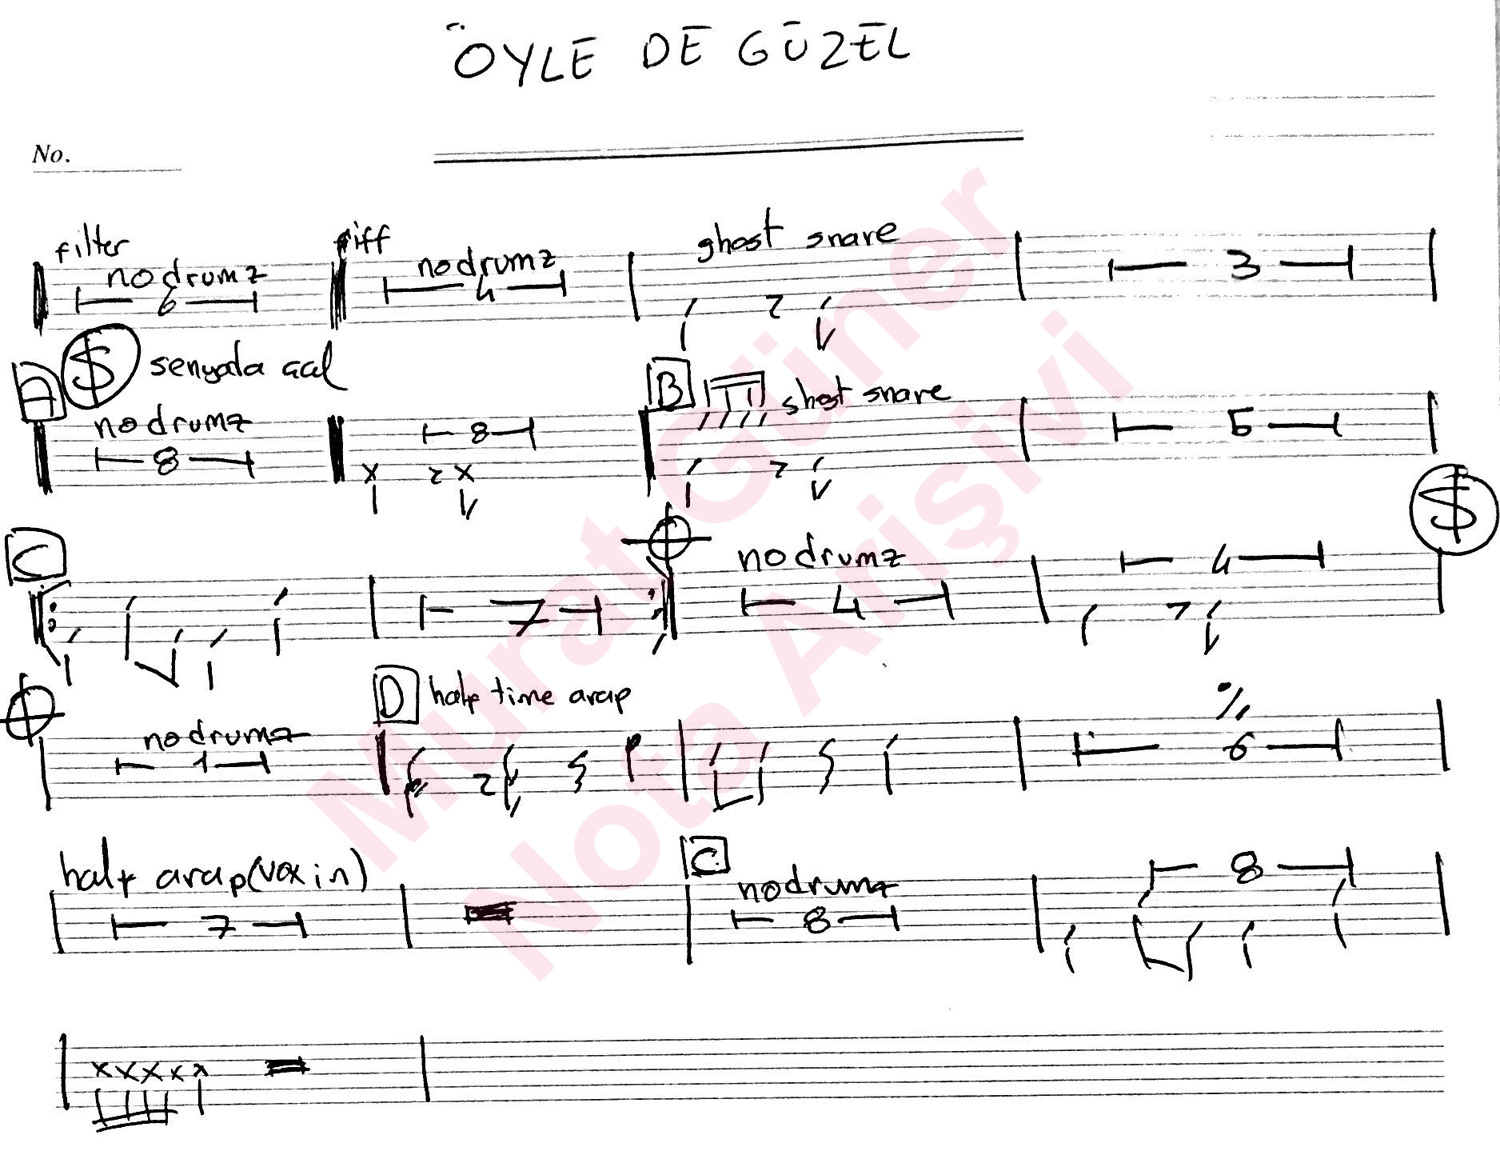 ÖYLE DE GÜZEL
No.
filter
no drumz
6
riff
no drumz
4
ghost snare
3
A
senyoda çal
no drumz
8
8
B
ghost snare
5
C
7
no drumz
4
4
no drumz
1
D
half time arap
6
half arap (vox in)
7
C
no drumz
8
8
Murat Güner
Nota Arişivi